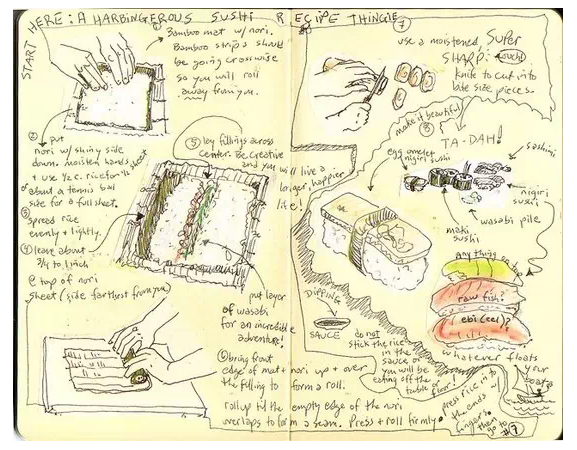 START HERE: A HARBINGEROUS SUSHI RECIPE THINGIE
① Bamboo mat w/ nori.
Bamboo strips should
be going crosswise
so you will roll
away from you.
② put
nori w/ shiny side
down. moisten hands
+ use ½ c. rice for ½ sheet
or about a tennis ball
size for a full sheet.
③ spread rice
evenly + lightly.
④ leave about
3/4 to 1 inch
@ top of nori
sheet (side farthest from you)
⑤ lay fillings across
center. Be creative
and you will live a
longer happier
life!
put layer
of wasabi
for an incredible
adventure!
⑥ bring front
edge of mat + nori up + over
the filling to form a roll.
roll up til the empty edge of the nori
overlaps to form a seam. Press + roll firmly.
press rice into
the ends w/
fingers,
then go to
#7
⑦
use a moistened super
SHARP! (ouch)
knife to cut into
bite size pieces.
make it beautiful
⑧
TA-DAH!
egg omelet
nigiri sushi
sashimi
nigiri
sushi
wasabi pile
maki
sushi
DIPPING
SAUCE
do not
stick the rice
in the
sauce or
you will be
eating off the
table or
floor!
Any thing
raw fish
ebi (eel)?
whatever floats
your
boat